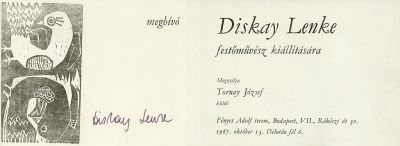 meghívó
Diskay Lenke
festőművész kiállítására
Megnyitja
Tornay József
költő
Fényes Adolf terem, Budapest, VII., Rákóczi út 30.
1967. október 13. Délután fél 6.
Diskay Lenke